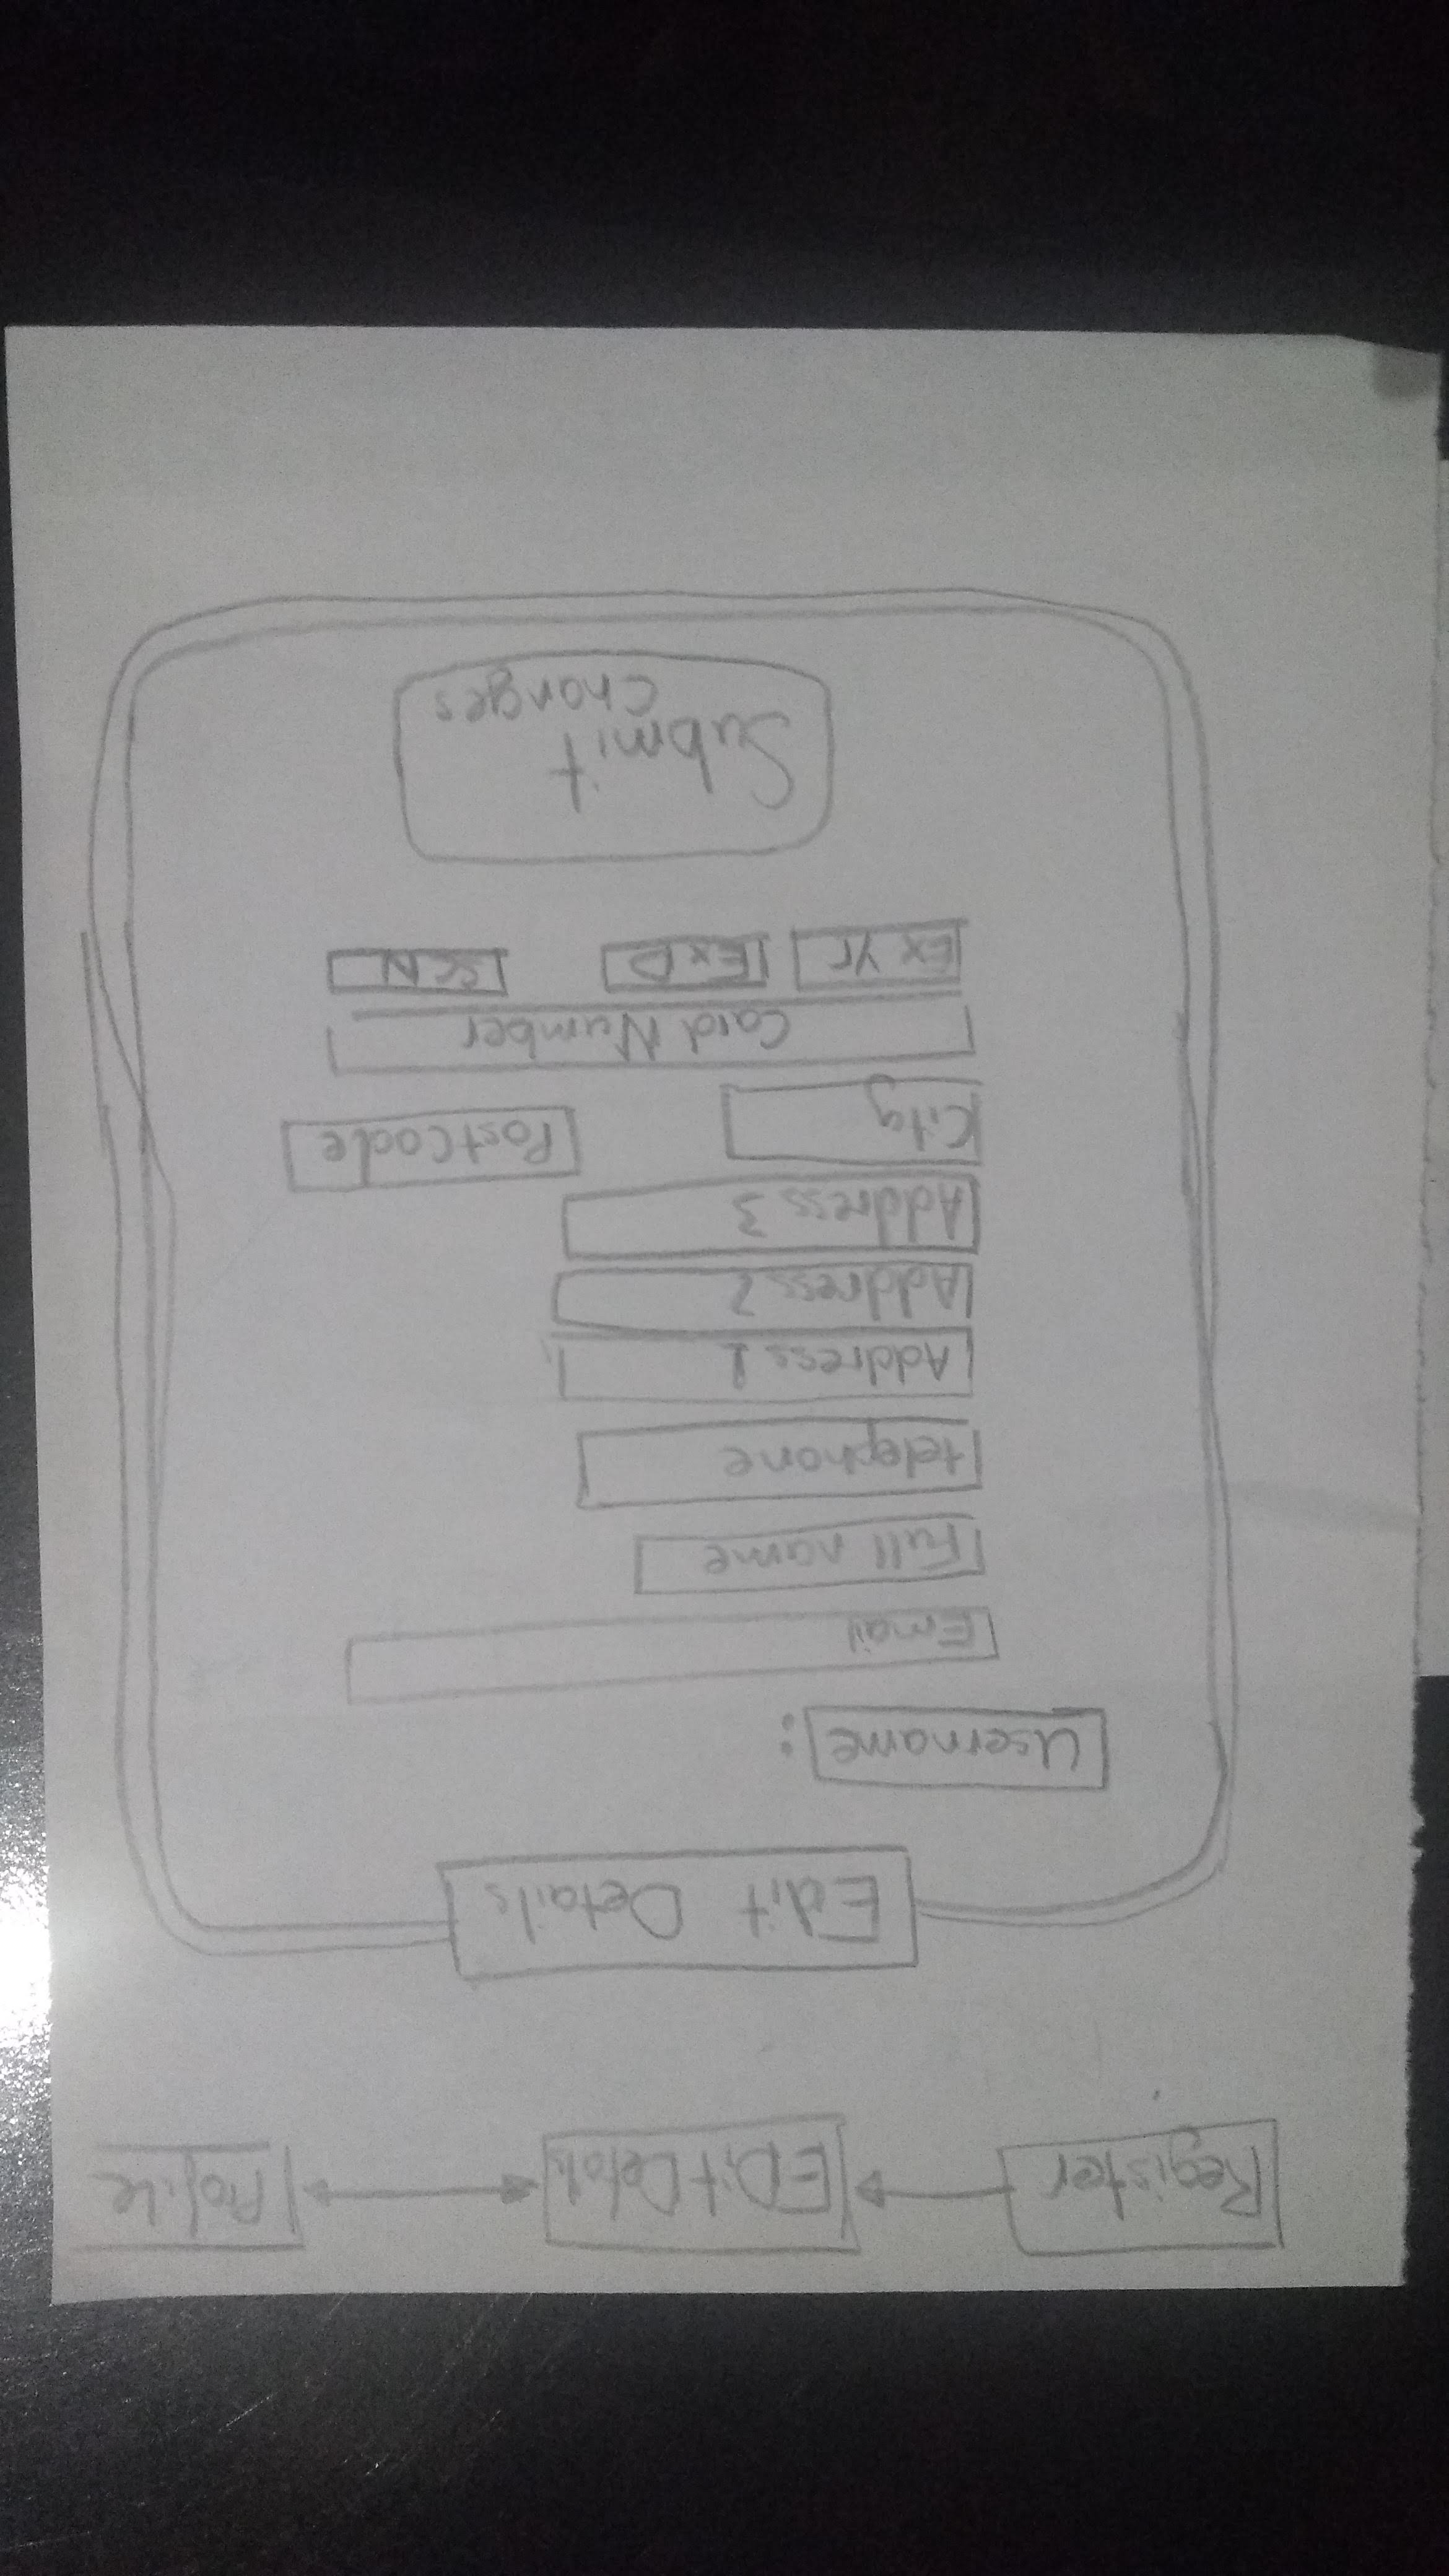 Register EDit Details Profile
Edit Details
Username :
Email
Full name
telephone
Address 1
Address 2
Address 3
City Postcode
Card Number
Ex Yr Ex D SCN
Submit
Changes